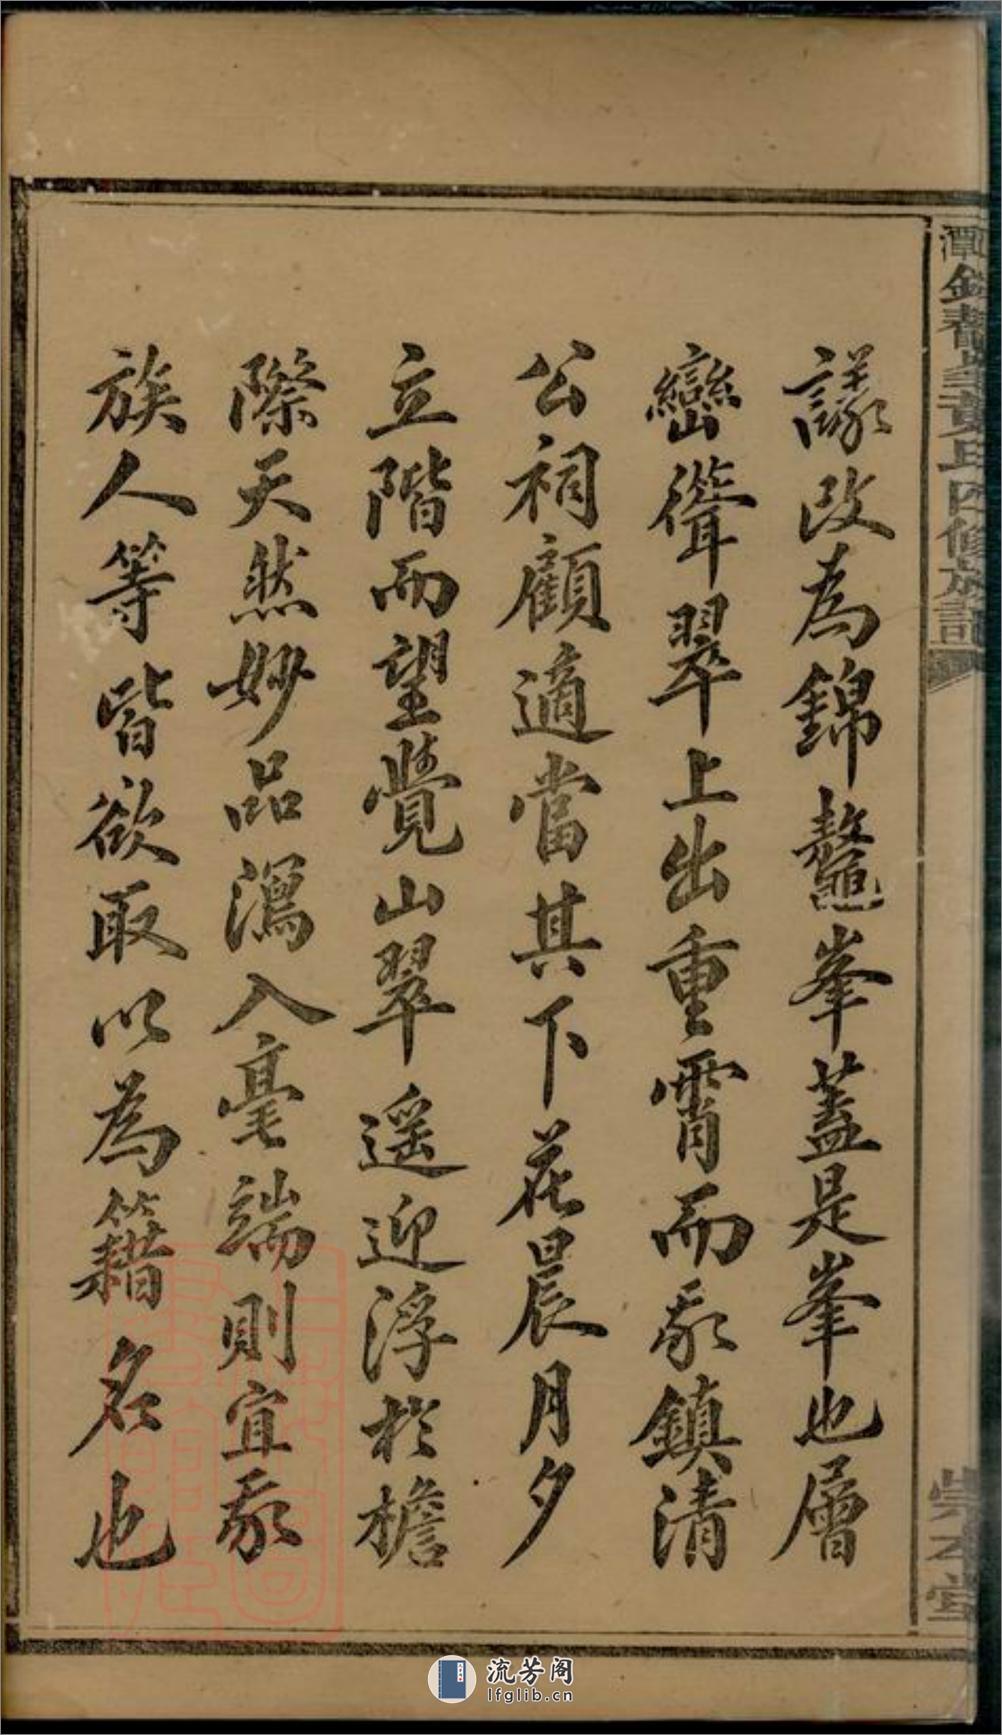 議改為錦鰲峯蓋是峯也層
巒聳翠上出重霄而我鎮清
公祠顧適當其下花晨月夕
立階而望覺山翠遥迎浮於檐
際天然妙品瀉入毫端則宜我
族人等皆欲取以為籍名也
潭 氏四修族記
崇本堂
流芳阁
lfglib.cn